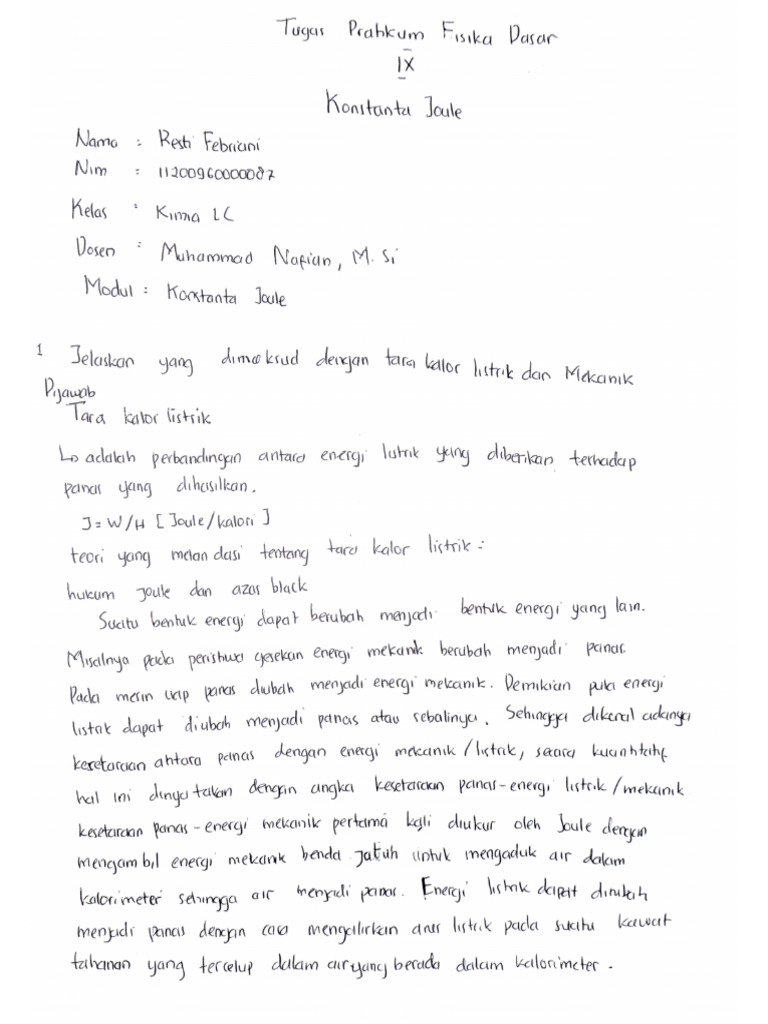 Tugas Praktikum Fisika Dasar
IX
Konstanta Joule
Nama : Resti Febriani
Nim : 11200960000087
Kelas : Kimia 1C
Dosen : Muhammad Nafian, M. Si
Modul : Konstanta Joule
1 Jelaskan yang dimaksud dengan tara kalor listrik dan Mekanik
Dijawab
Tara kalor listrik
↳ adalah perbandingan antara energi listrik yang diberikan terhadap
panas yang dihasilkan.
J = W/H [Joule/kalori]
teori yang melandasi tentang tara kalor listrik :
hukum Joule dan azas black
Suatu bentuk energi dapat berubah menjadi bentuk energi yang lain.
Misalnya pada peristiwa gesekan energi mekanik berubah menjadi panas.
Pada mesin uap panas diubah menjadi energi mekanik. Demikian pula energi
listrik dapat diubah menjadi panas atau sebalinya. Sehingga dikenal adanya
kesetaraan antara panas dengan energi mekanik/listrik, secara kuantitatif
hal ini dinyatakan dengan angka kesetaraan panas-energi listrik/mekanik
kesetaraan panas-energi mekanik pertama kali diukur oleh Joule dengan
mengambil energi mekanik benda jatuh untuk mengaduk air dalam
kalorimeter sehingga air menjadi panas. Energi listrik dapat dirubah
menjadi panas dengan cara mengalirkan arus listrik pada suatu kawat
tahanan yang tercelup dalam air yang berada dalam kalorimeter.